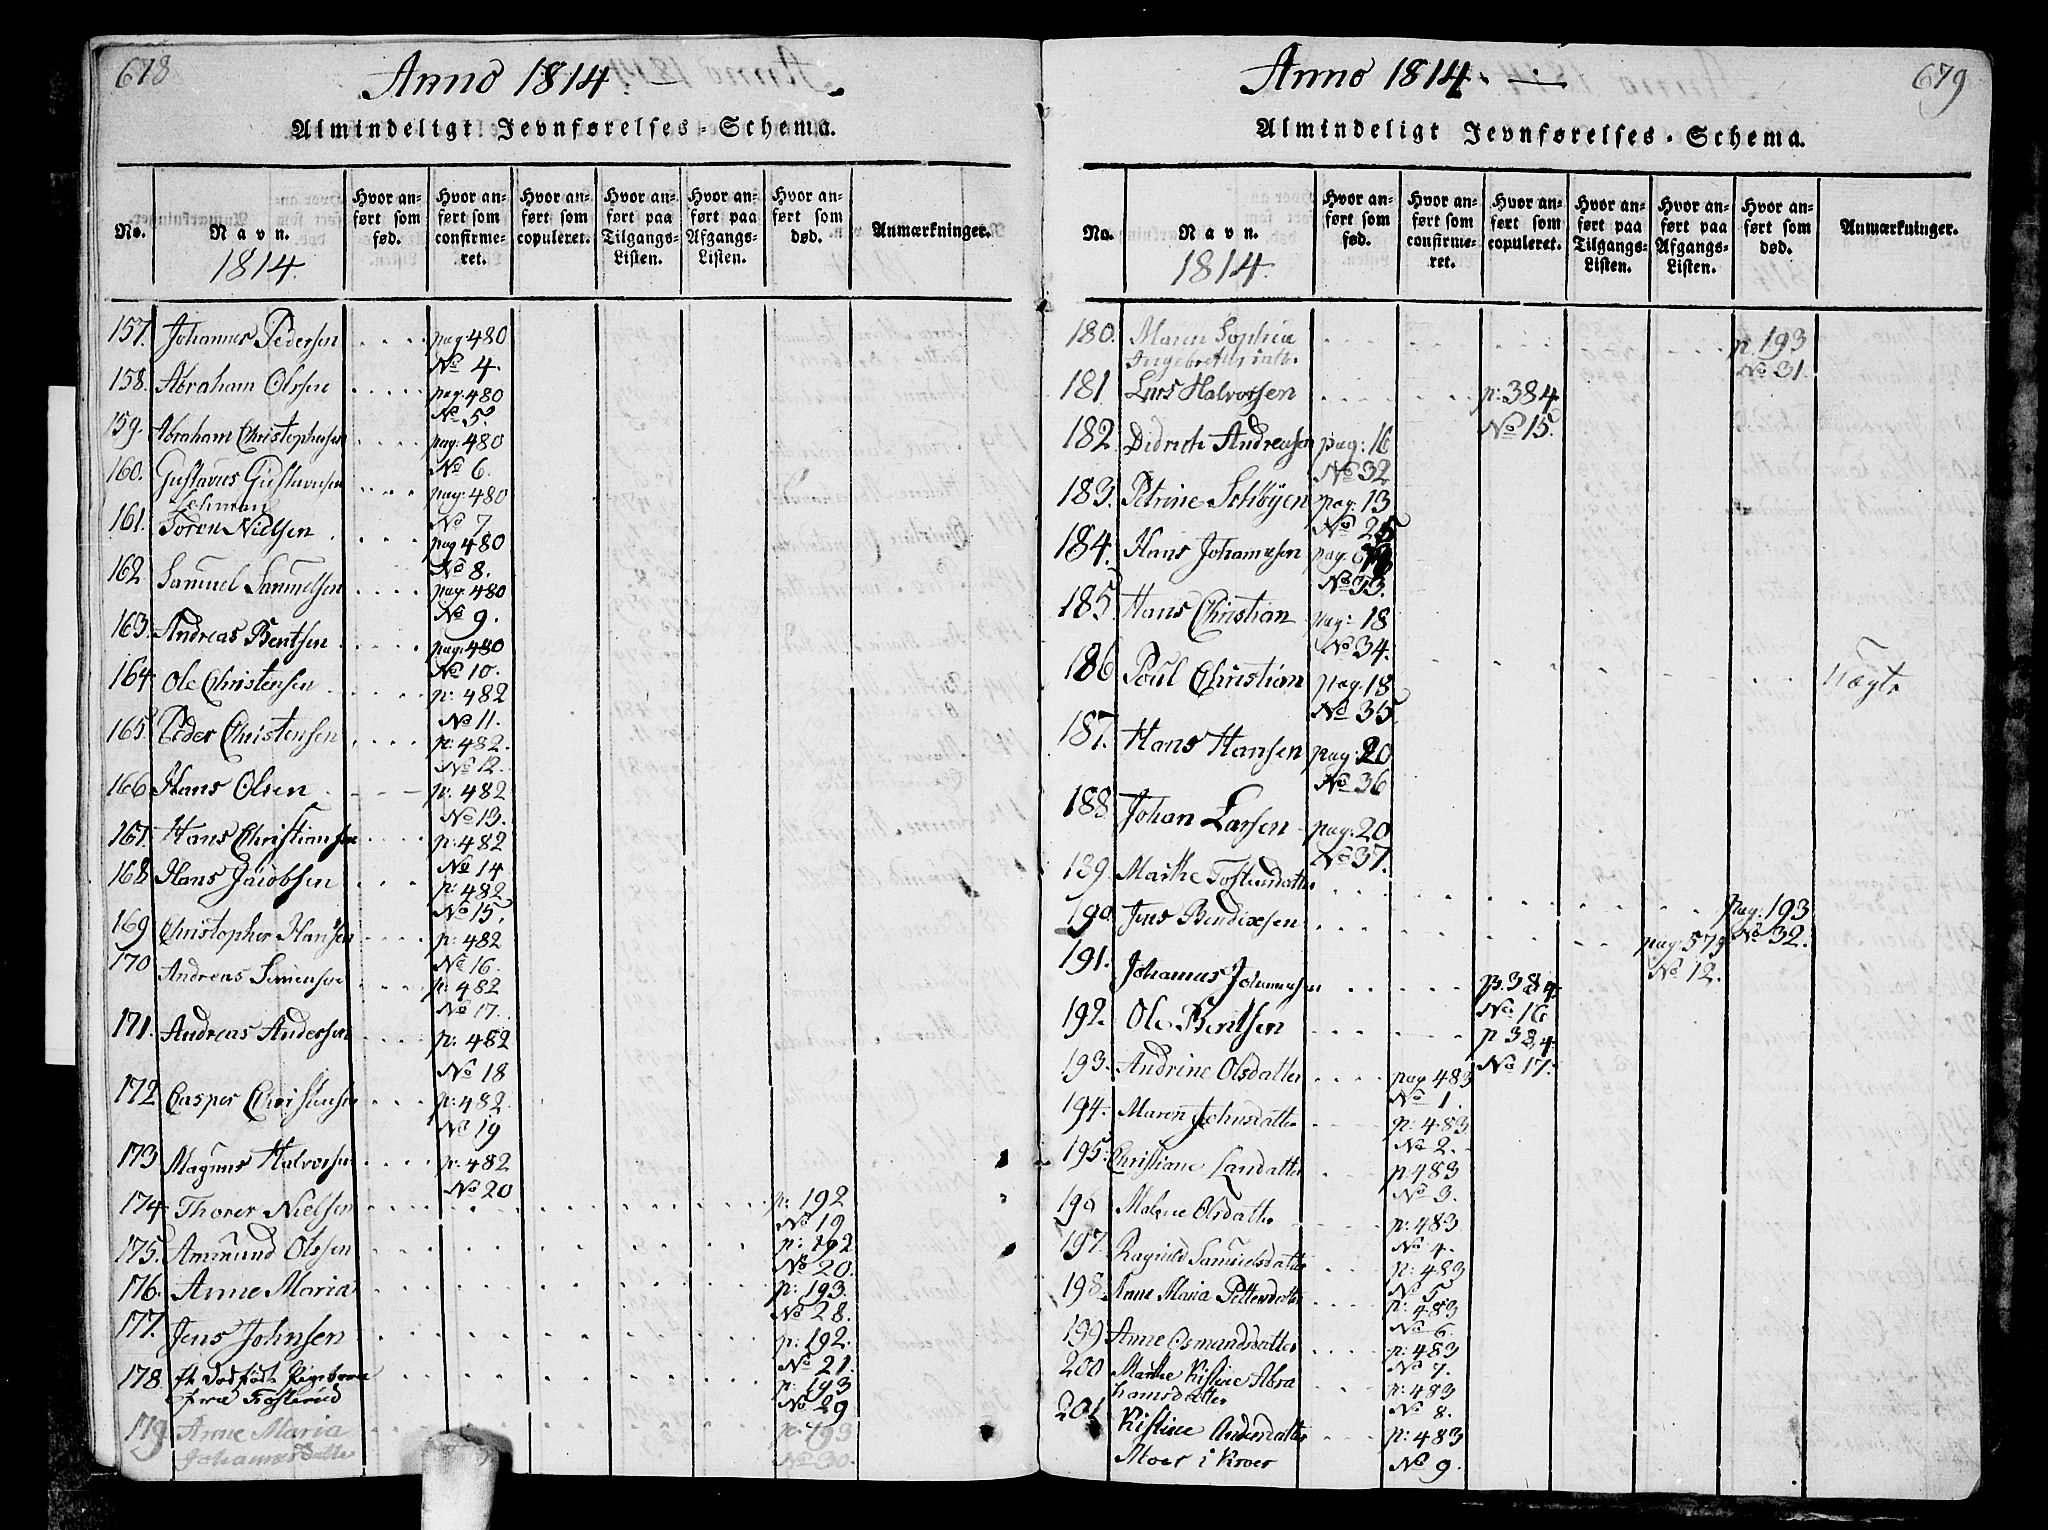 678
Anno 1814.
Almindeligt Jevnførelses-Schema.
No.
Navn.
1814
Hvor anført som fød.
Hvor anført som confirmeret.
Hvor anført som copuleret.
Hvor anført paa Tilgangs-Listen.
Hvor anført paa Afgangs-Listen.
Hvor anført som død.
Anmærkninger.
157. Johannes Pedersen .... pag: 480
No 4.
158. Abraham Olsen .... pag: 480
No 5.
159. Abraham Christophersen .... pag: 480
No 6.
160. Gustavus Gustavusen .... pag: 480
Lehman No 7.
161. Søren Nielsen .... pag 480
No 8.
162 Samuel Samuelsen .... pag: 480
No 9.
163. Andreas Bentsen .... pag: 480
No 10.
164 Ole Christensen .... p: 482
No 11.
165. Peder Christensen .... p: 482.
No 12.
166 Hans Olsen .... p: 482
No 13.
167. Hans Christiansen .... p: 482
No 14
168 Hans Jacobsen ... p: 482
No 15.
169 Christopher Hansen .... p: 482
No 16.
170 Andreas Simensen .... p: 482
No 17.
171. Andreas Andersen .... p: 482
No 18
172 Casper Christensen ... p: 482.
No 19
173 Magnus Halvorsen .... p: 482
No 20
174 Thorer Nielsen .... p: 192
No 19
175. Ammund Olssen .... p: 192
No 20.
176. Anne Maria .... p: 193.
No 28.
177. Jens Johnsen .... p: 192.
No 21.
178. et dødfødt Pigebarn p: 193
fra No 29
179 Anne Maria p. 193
Johannesdatter No 30.
679
Anno 1814.
Almindeligt Jevnførelses-Schema.
No.
Navn.
1814.
Hvor anført som fød.
Hvor anført som confirmeret.
Hvor anført som copuleret.
Hvor anført paa Tilgangs-Listen.
Hvor anført paa Afgangs-Listen.
Hvor anført som død.
Anmærkninger.
180. Maren Sophia .... p. 193
Ingebretsdatter No 31.
181 Lars Halvorsen .... p: 384
No 15.
182 Didrich Andreasen pag: 16
No 32
183. Petrine pag. 13
No 25
184. Hans Johannesen pag.
No 33.
185 Hans Christian pag: 18
No 34.
186 Poul Christian pag. 18
No 35
187. Hans Hansen pag: 20
No 36
188 Johan Larsen pag. 20
No 37.
189. Marthe Tostensdatter .... pag. 193
No 32.
190 Jens Bendixsen .... pag: 579
No 12.
191. Johannes Johannesen .... p. 384.
No 16
192. Ole Bentsen .... p 384
No 17.
193. Andrine Olsdatter .... pag 483
No 1.
194. Maren Johnsdatter .... p: 483.
No 2.
195. Christiane Larsdatter .. p: 483
No 3.
196 Malene Olsdatter .... p: 483
No 4.
197 Ragnild Samuelsdatter p: 483
No 5
198 Anne Maria Pettersdatter .... p: 483
No 6.
199 Anne Osmundsdatter .... p: 483
No 7.
200 Marthe Kistine Abra
hamsdatter .. p: 483
No 8.
201 Kistine Andersdatter ... p: 483
Moer i Kroer No 9.